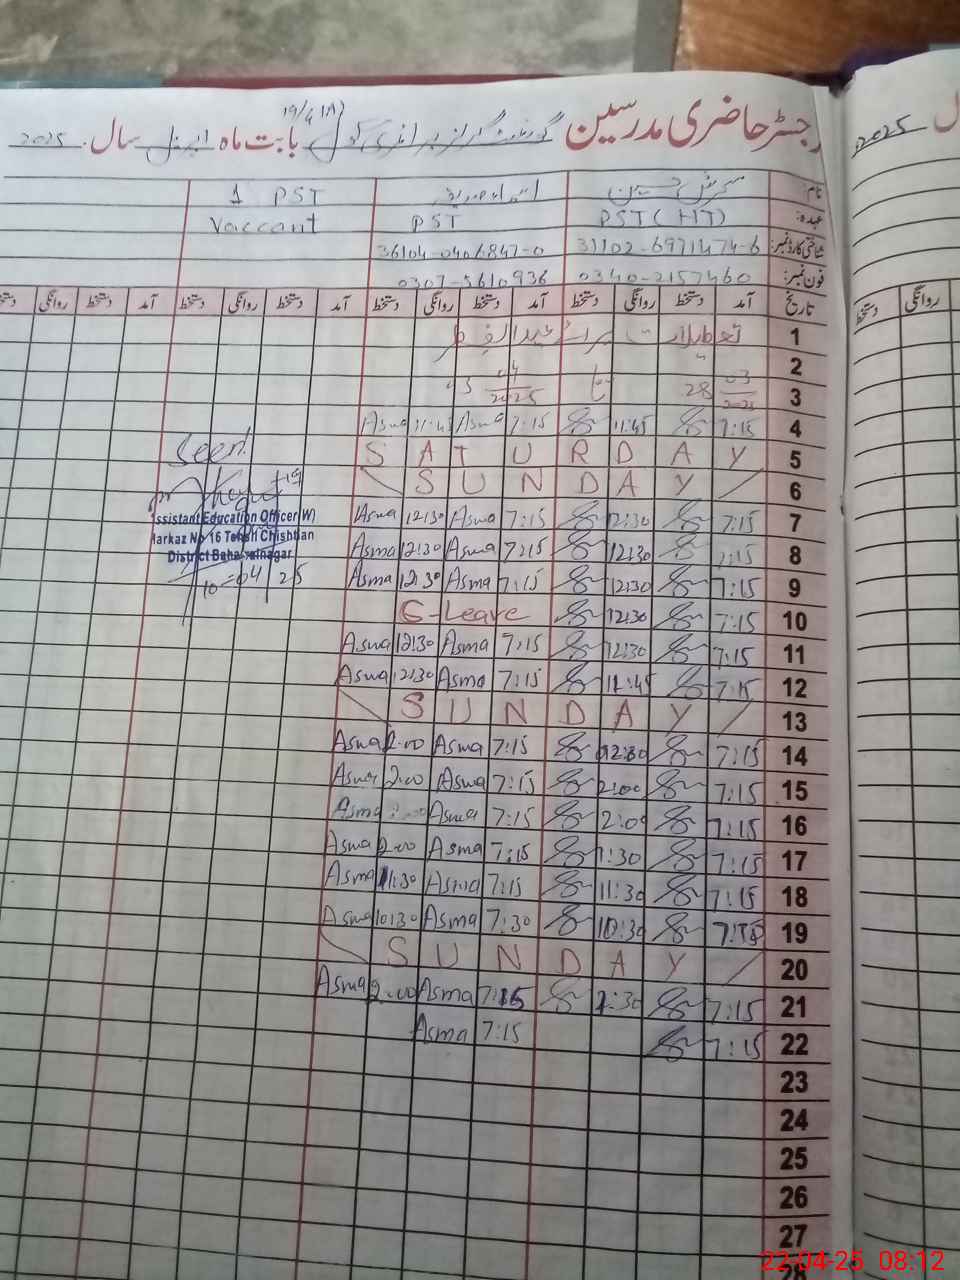 رجسٹر حاضری مدرسین گورنمنٹ گرلز پرائمری سکول 19/4 (A) بابت ماہ اپریل سال 2025
نام: سحرش حسین اسماء 1 PST
عہدہ: PST (HT) PST Vaccant
شناختی کارڈ نمبر: 31102-6971474-6 36104-0406847-0
فون نمبر: 0340-2157460 0307-5610936
تاریخ آمد دستخط روانگی دستخط آمد دستخط روانگی دستخط آمد دستخط روانگی دستخط آمد دستخط روانگی دستخط
1 تعطیلات برائے عیدالفطر
2
3 28 03/2025 تا 03 04/2025
4 7:15 11:45 7:15 Asma 11:45 Asma
5 S A T U R D A Y
6 S U N D A Y
7 7:15 12:30 7:15 Asma 12:30 Asma
8 7:15 12:30 7:15 Asma 12:30 Asma
9 7:15 12:30 7:15 Asma 12:30 Asma
10 7:15 12:30 C-Leave
11 7:15 12:30 7:15 Asma 12:30 Asma
12 7:15 11:45 7:15 Asma 12:30 Asma
13 S U N D A Y
14 7:15 12:30 7:15 Asma 2:00 Asma
15 7:15 2:00 7:15 Asma 2:00 Asma
16 7:15 2:00 7:15 Asma Asma
17 7:15 1:30 7:15 Asma 2:00 Asma
18 7:15 11:30 7:15 Asma 11:30 Asma
19 7:15 10:30 7:30 Asma 10:30 Asma
20 S U N D A Y
21 7:15 1:30 7:15 Asma 2:00 Asma
22 7:15 7:15 Asma
23
24
25
26
27
28
Seen
Assistant Education Officer (W)
Markaz No 16 Tehsil Chishtian
District Bahawalnagar
10-04-25
سال 2025
روانگی دستخط
22-04-25 08:12